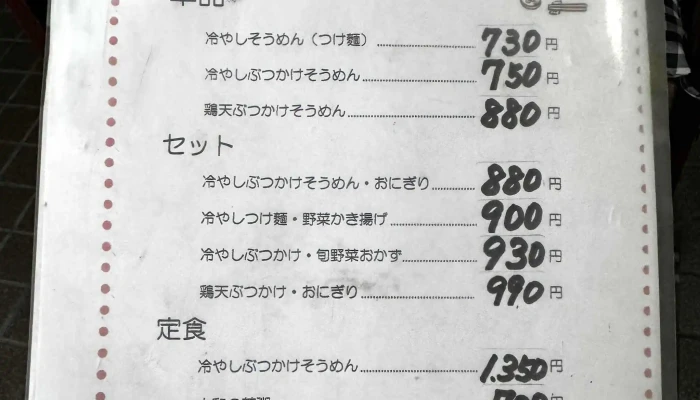 単品
冷やしそうめん（つけ麺） 730円
冷やしぶつかけそうめん 750円
鶏天ぶつかけそうめん 880円
セット
冷やしぶつかけそうめん・おにぎり 880円
冷やしつけ麺・野菜かき揚げ 900円
冷やしぶつかけ・旬野菜おかず 930円
鶏天ぶつかけ・おにぎり 990円
定食
冷やしぶつかけそうめん 1.350円